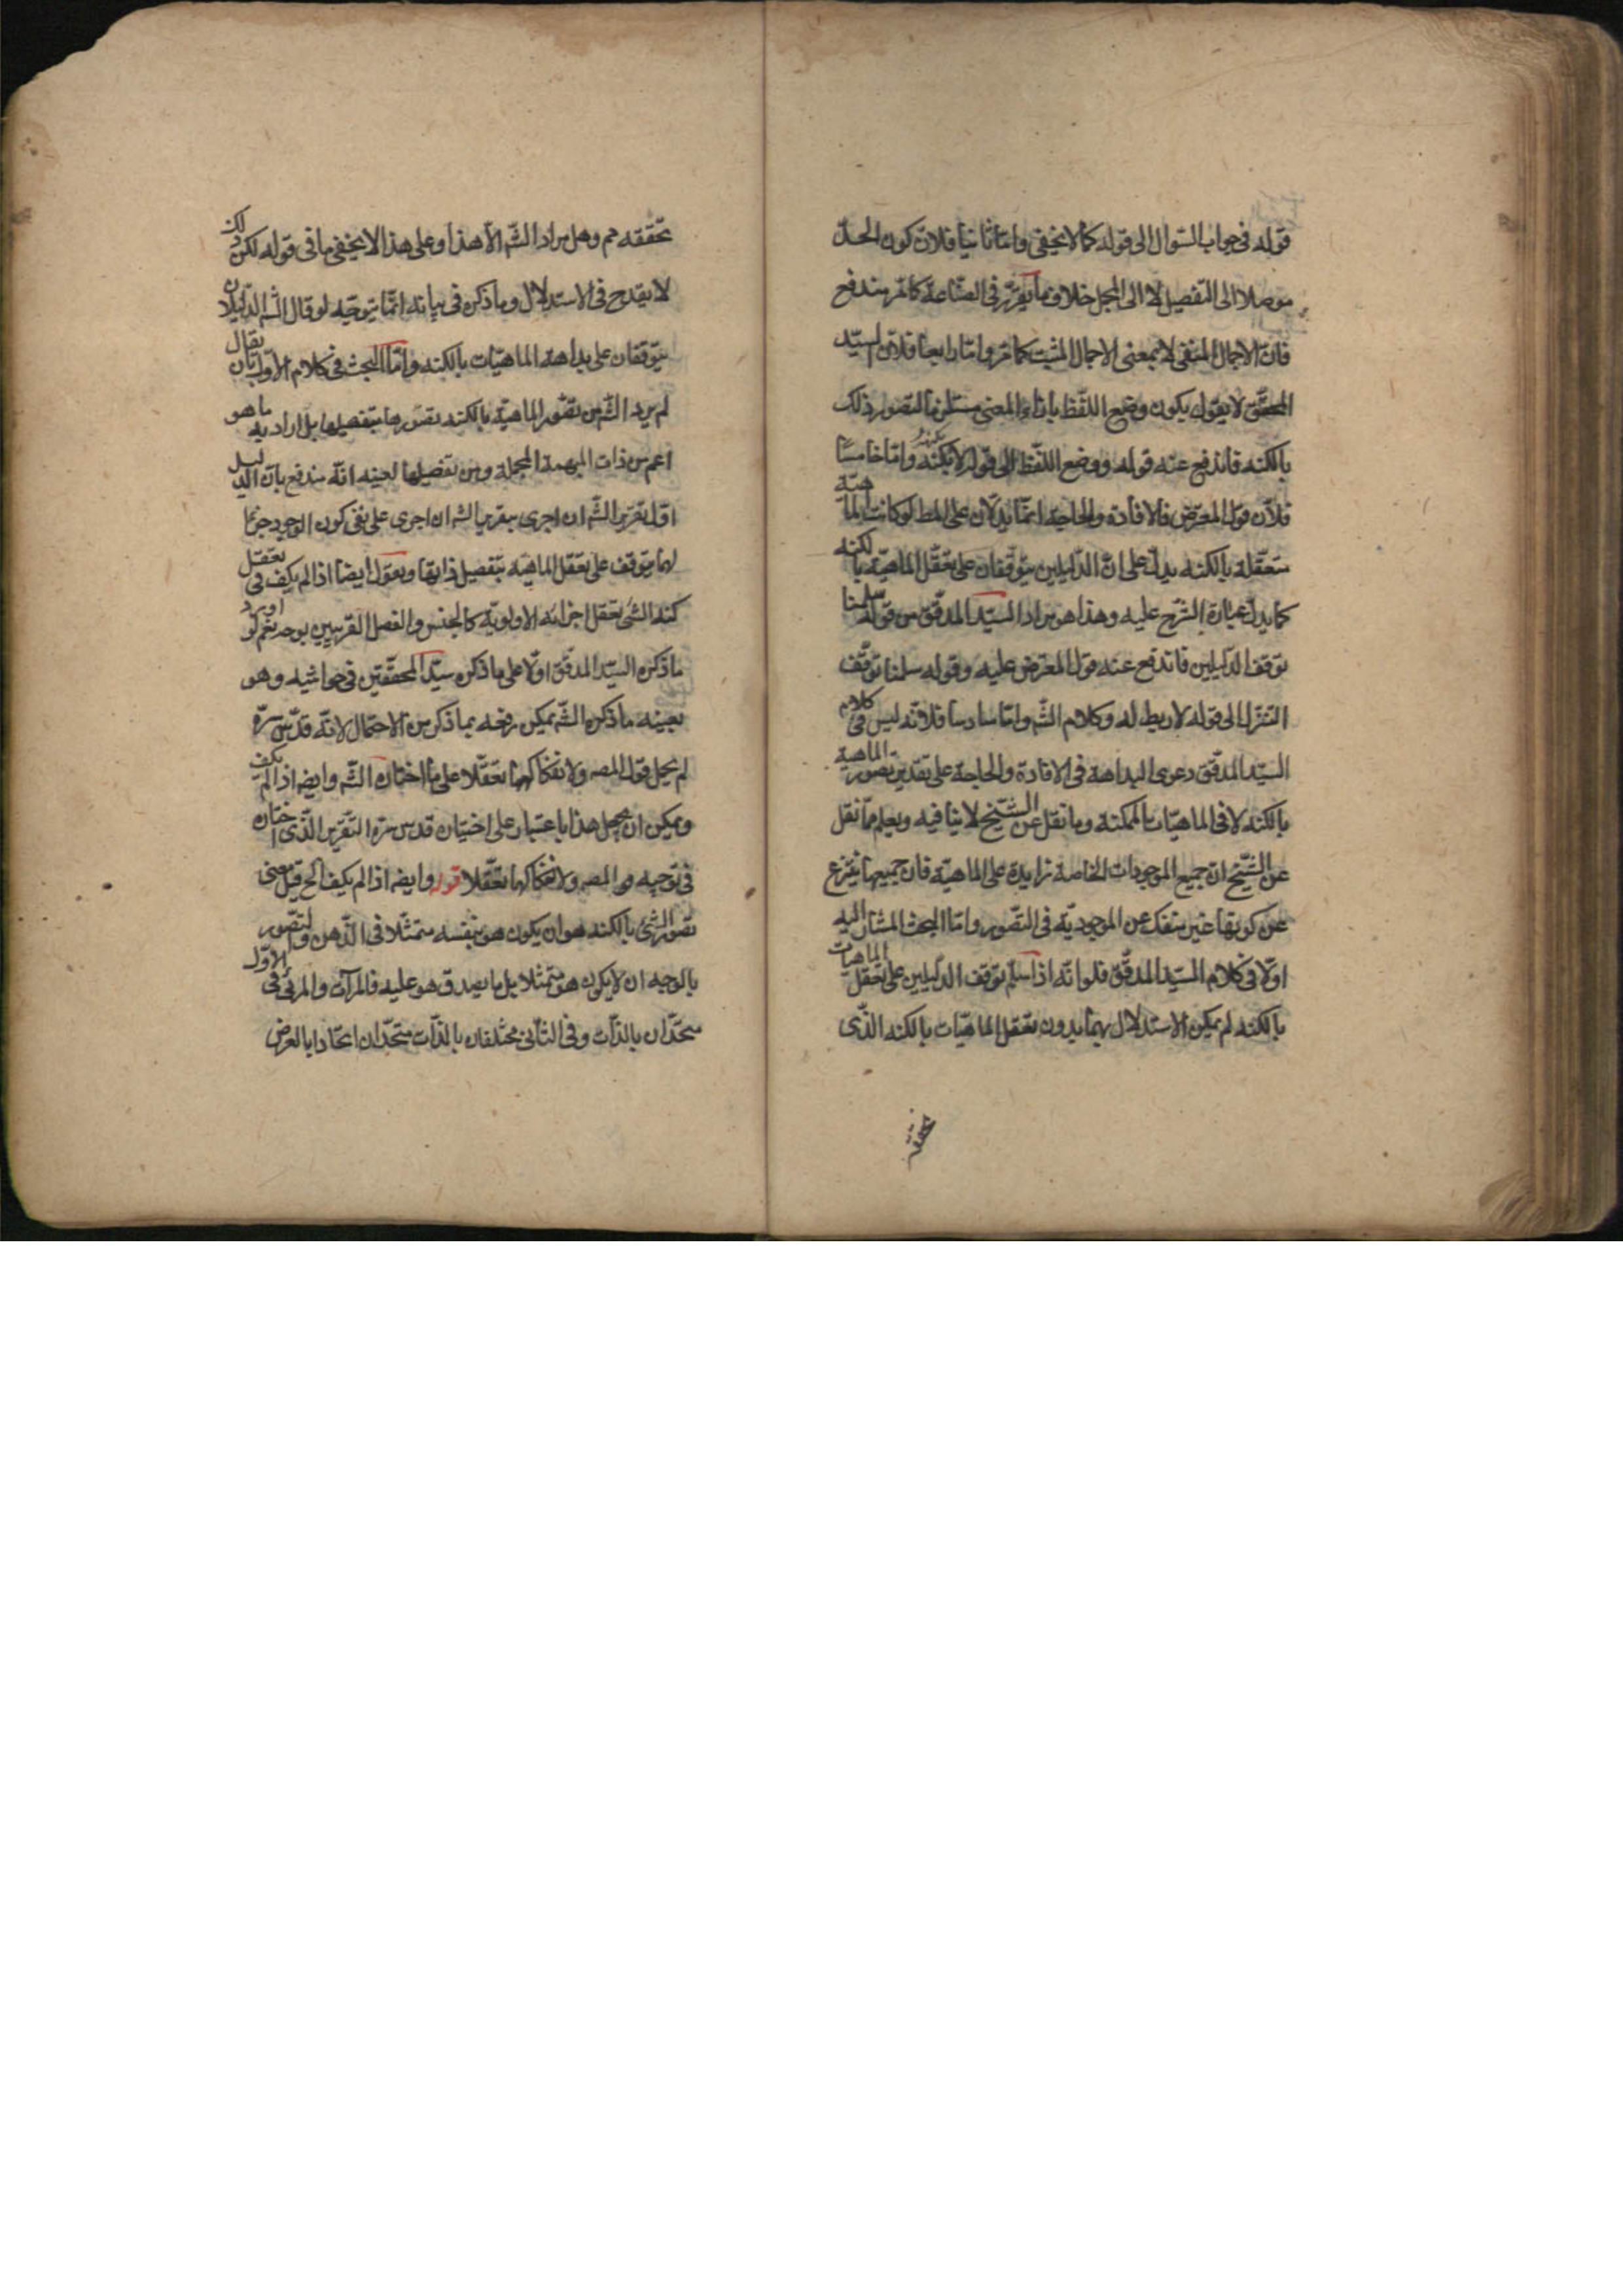 قوله فى جواب السّوال الى قوله كما لا يخفى وامّا ثانيا فلانّ كون الحدّ
موصلا الى التفصيل لا الى المجمل خلاف ما يقرّر فى الصّناعة كما مرّ مندفع
فانّ الاجمال المنفى لا بمعنى الاجمال المثبت كما مرّ وامّا رابعا فلانّ السيّد
المحقّق لا يقول يكون وضع اللّفظ بازاء المعنى مستلزما لتصور ذلك
بالكنه فاندفع عنه قوله ووضع اللّفظ الى قوله لا بكنهه وامّا خامسًا
فلانّ قول المعترض فالافادة والحاجة انّما يدلّان على المط لو كانت الماهيّة
متعقّلة بالكنه يدلّ على انّ الدّليلين يتوقّفان على تعقّل الماهيّة بالكنه
كما يدلّ عبارة الشّرح عليه وهذا هو مراد السيّد المدقّق من قوله سلمنا
توقف الدّليلين فاندفع عنه قول المعترض عليه وقوله سلمنا توقّف
التنزّل الى قوله لا ربط له وكلام الشّم وامّا سادسا فلانّه ليس فى كلام
السيّد المدقّق دعوى البداهة فى الافادة والحاجة على تقدير تصور الماهية
بالكنه لا فى الماهيّات بالممكنة وما نقل عن الشّيخ لا ينافيه ويعلم ممّا نقل
عن الشّيخ انّ جميع الموجودات الخاصة زايدة على الماهيّة فان جميعها ينتزع
عن كونها غير منفك عن الموجوديّة فى التّصور وامّا البحث المشار اليه
اوّلا فى كلام السيّد المدقّق فلوانّه اذا سلّم توقف الدّليلين على تعقل الماهيات
بالكنه لم يمكن الاستدلال بهما بدون تعقل الماهيّات بالكنه الذّى
تحققه
تحققه مم وهل مراد الشّم الّا هذا وعلى هذا لا يخفى ما فى قوله لكن ذلك
لا يقدح فى الاستدلال وما ذكره فى بيانه انّما يتوجّه لو قال الشّم الدّليلان
يتوقّفان على بداهة الماهيّات بالكنه وامّا البحث فى كلام الاوّل بان يقال
لم يرد الشّم من تصّور الماهيّة بالكنه تصوّرها بتفصيلها بل اراد به ما هو
اعم من ذات المبهمة المجملة ومن تفصيلها لعينه انّه مندفع بانّ الدليل
اوّل تقرير الشّم ان اجرى بتقرير الشم ان اجرى على نفى كون الوجود جزءا
لها متوّقف على تعّقل الماهيّة بتفصيل ذاتها ونقول ايضا اذا لم يكف فى تعقل
كنه الشئ تعقل اجزائه الاولوية كالجنس والفصل القريبين بوجه نعم لو اورد
ما ذكره السيّد المدقّق اوّلا على ما ذكره سيّد المحقّقين فى حواشيه وهو
بعينه ما ذكره الشّم يمكن رفعه بما ذكر من الاحتمال لانّه قدّس سرّه
لم يحمل قول المصم ولانفكاكهما تعقّلا على ما اختاره الشّم وايضم اذا لم يكف
ويمكن ان يحمل هذا باعتبار على اختيار قدس سرّه التّقرير الّذى اختاره
فى توجيه قو المصم ولانفكاكهما تعّقلا قور وايضم اذا لم يكف الخ قيل معنى
تصّور الشئ بالكنه هو ان يكون هو بنفسه متمثّلا فى الذّهن والتصّور
بالوجه ان لا يكون هو متمثلا بل ما يصدق هو عليه فالمرآت والمرئى فى الاوّل
متحدّان بالذّات وفى الثّانى مختلفان بالذّات متحدّان اتحادا بالعرض